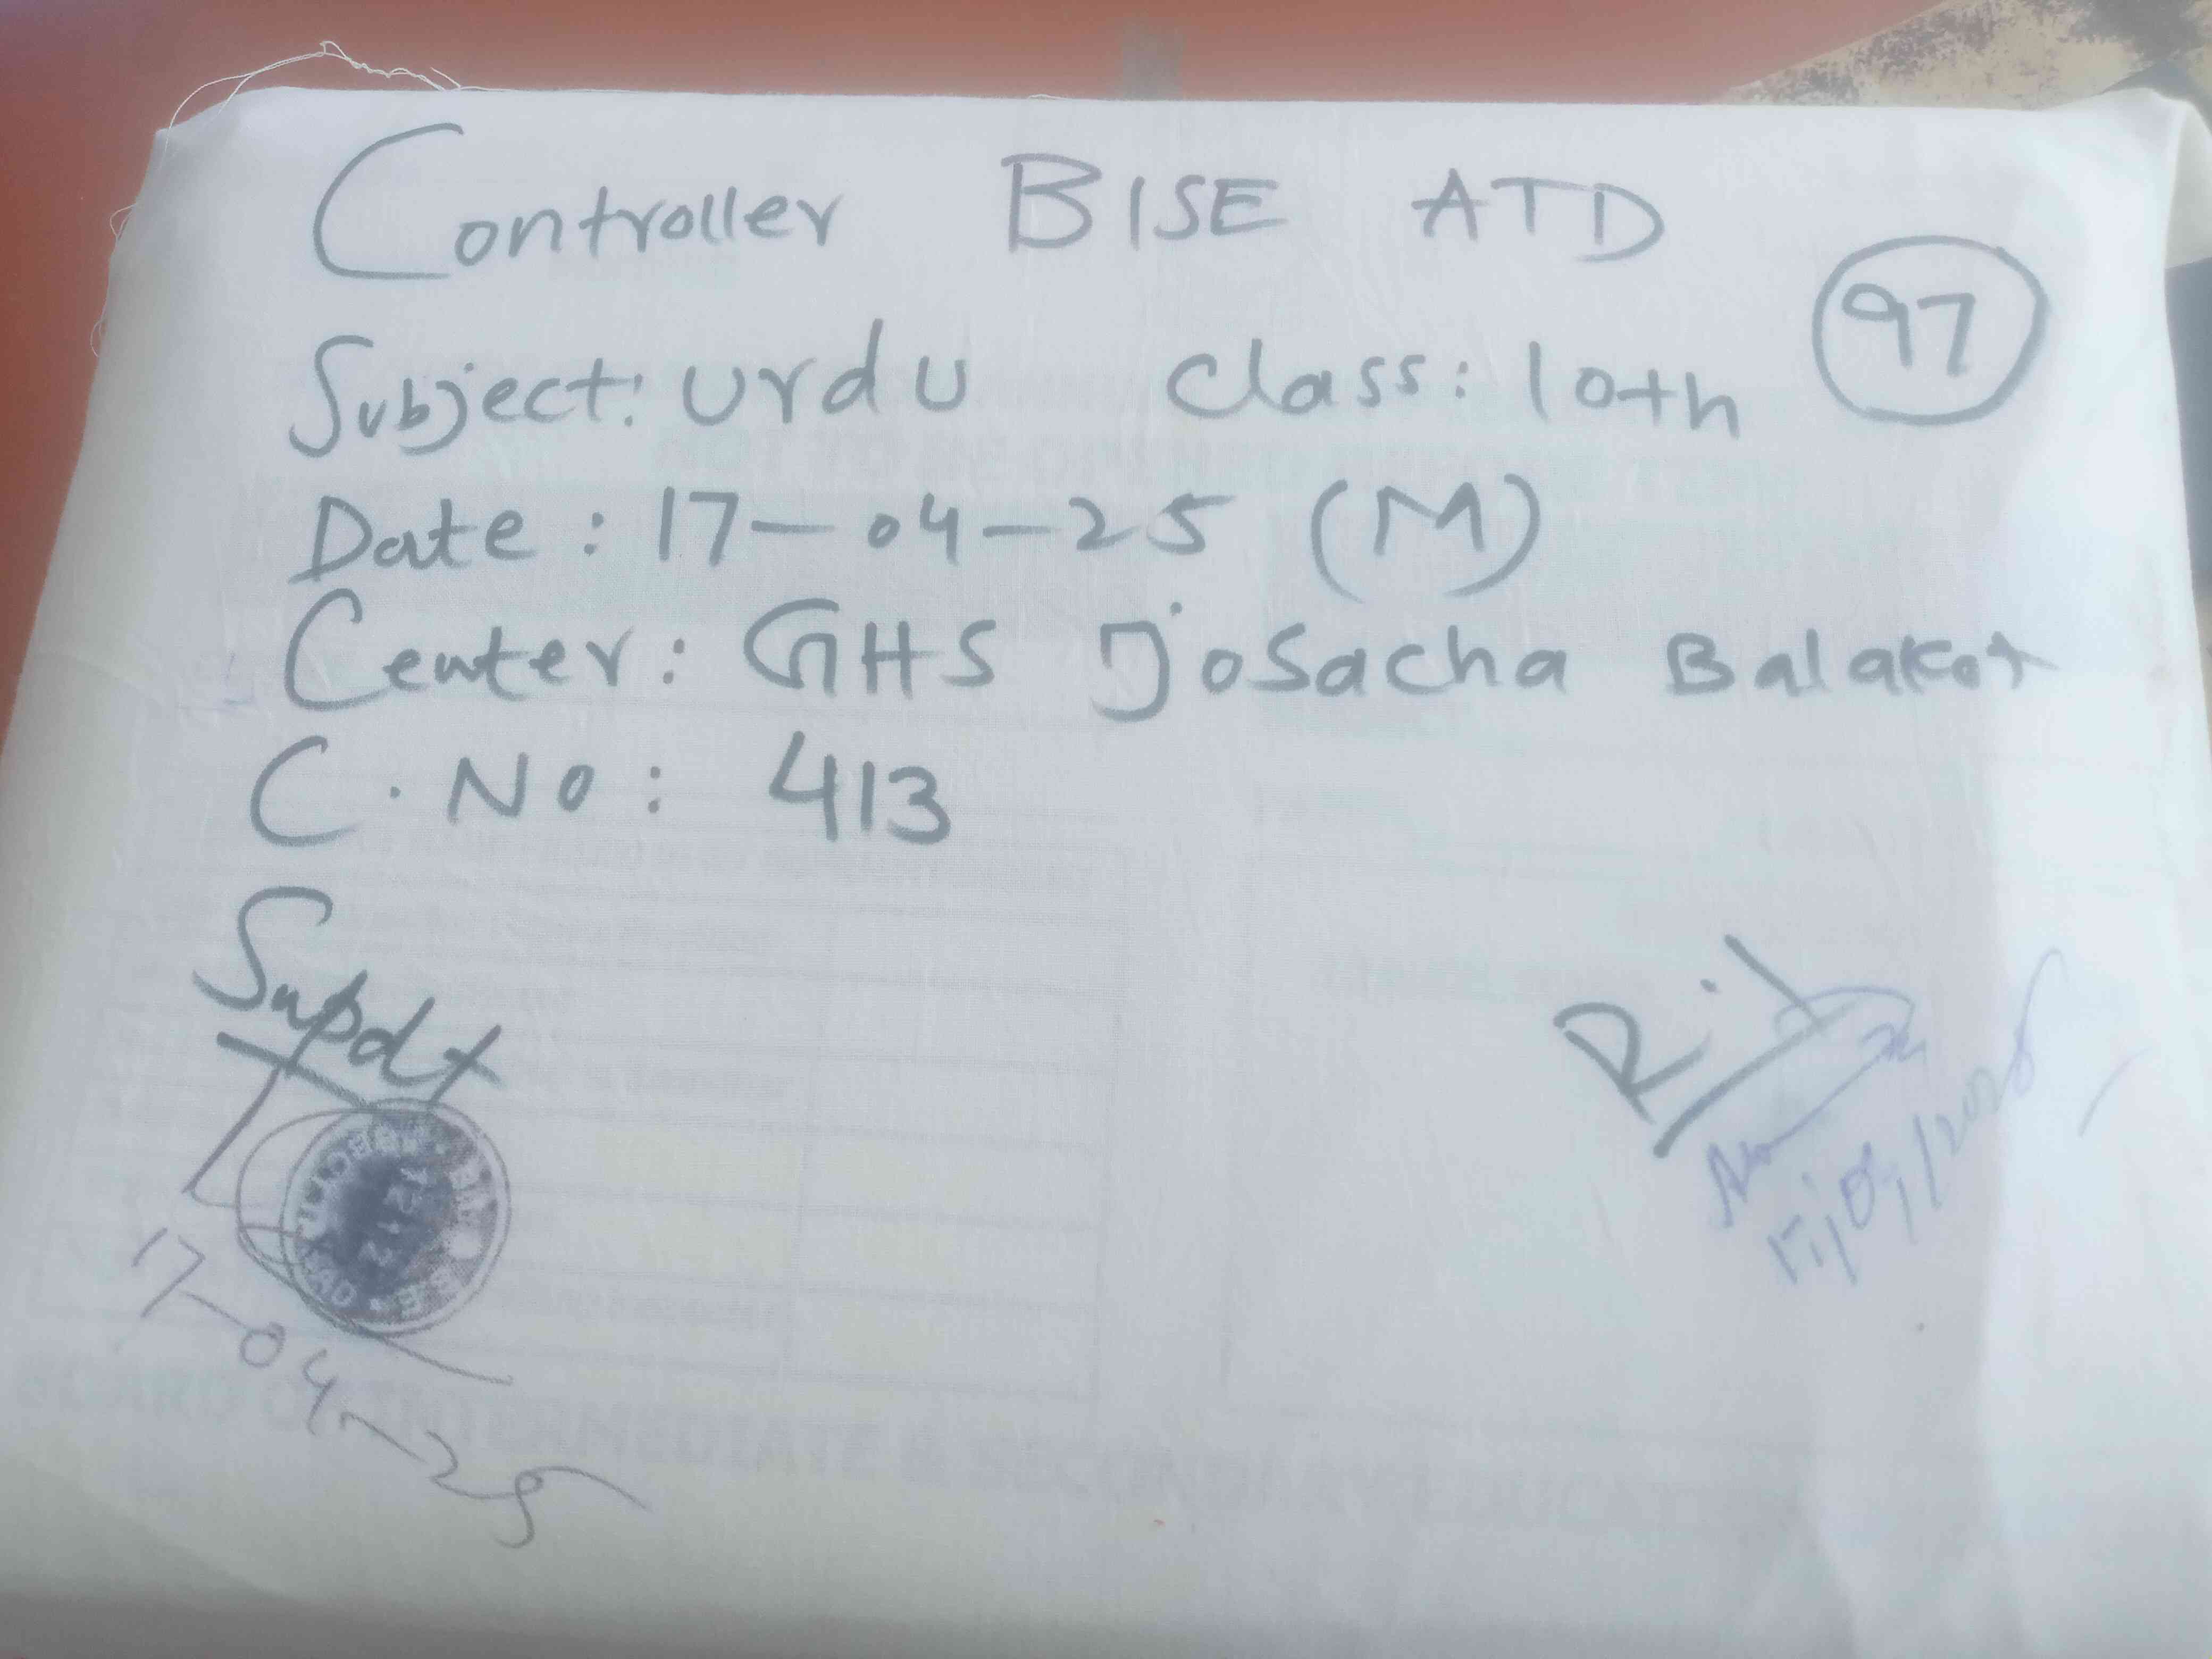 Controller BISE ATD
97
Subject: Urdu Class: 10th
Date: 17-04-25 (M)
Center: GHS Josacha Balakot
C. No: 413
Supdt
R.I
17-04-25